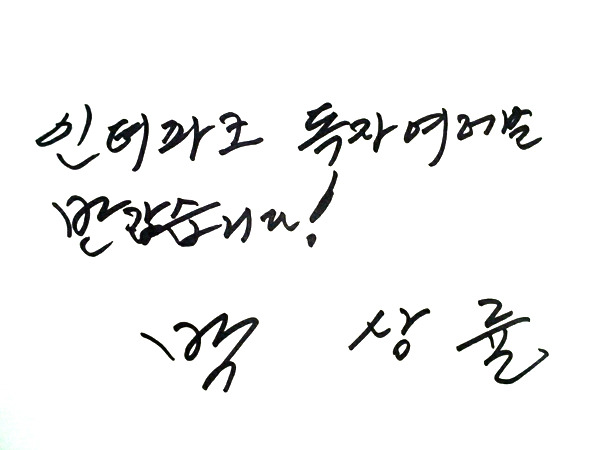 인터파크 독자여러분
반갑습니다!
박 상 률